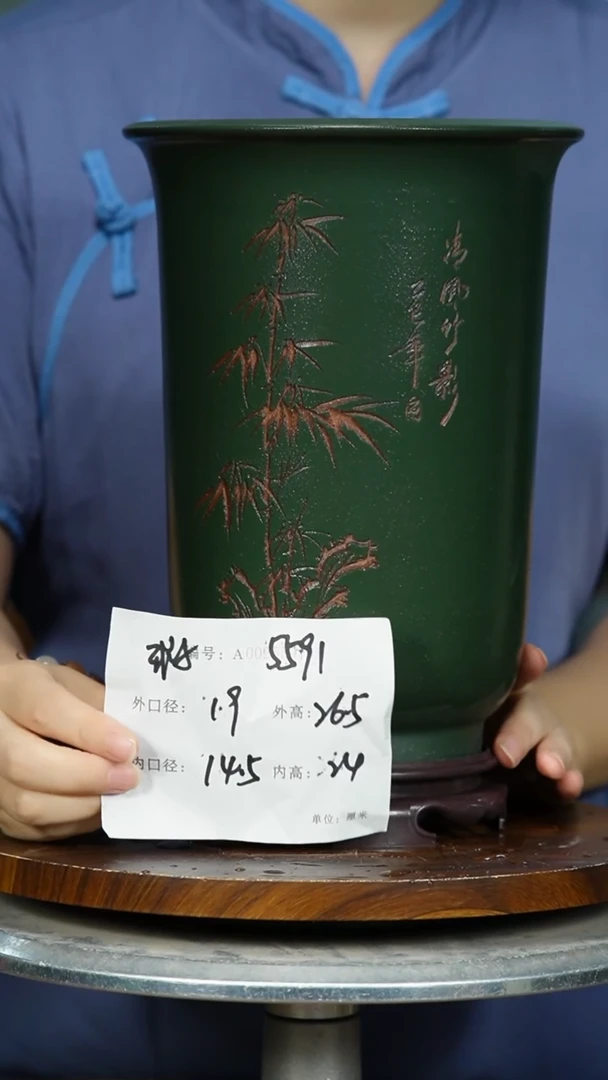 清风竹影
编号: A00 5591
外口径: 19 外高: 26.5
内口径: 14.5 内高: 24
单位: 厘米